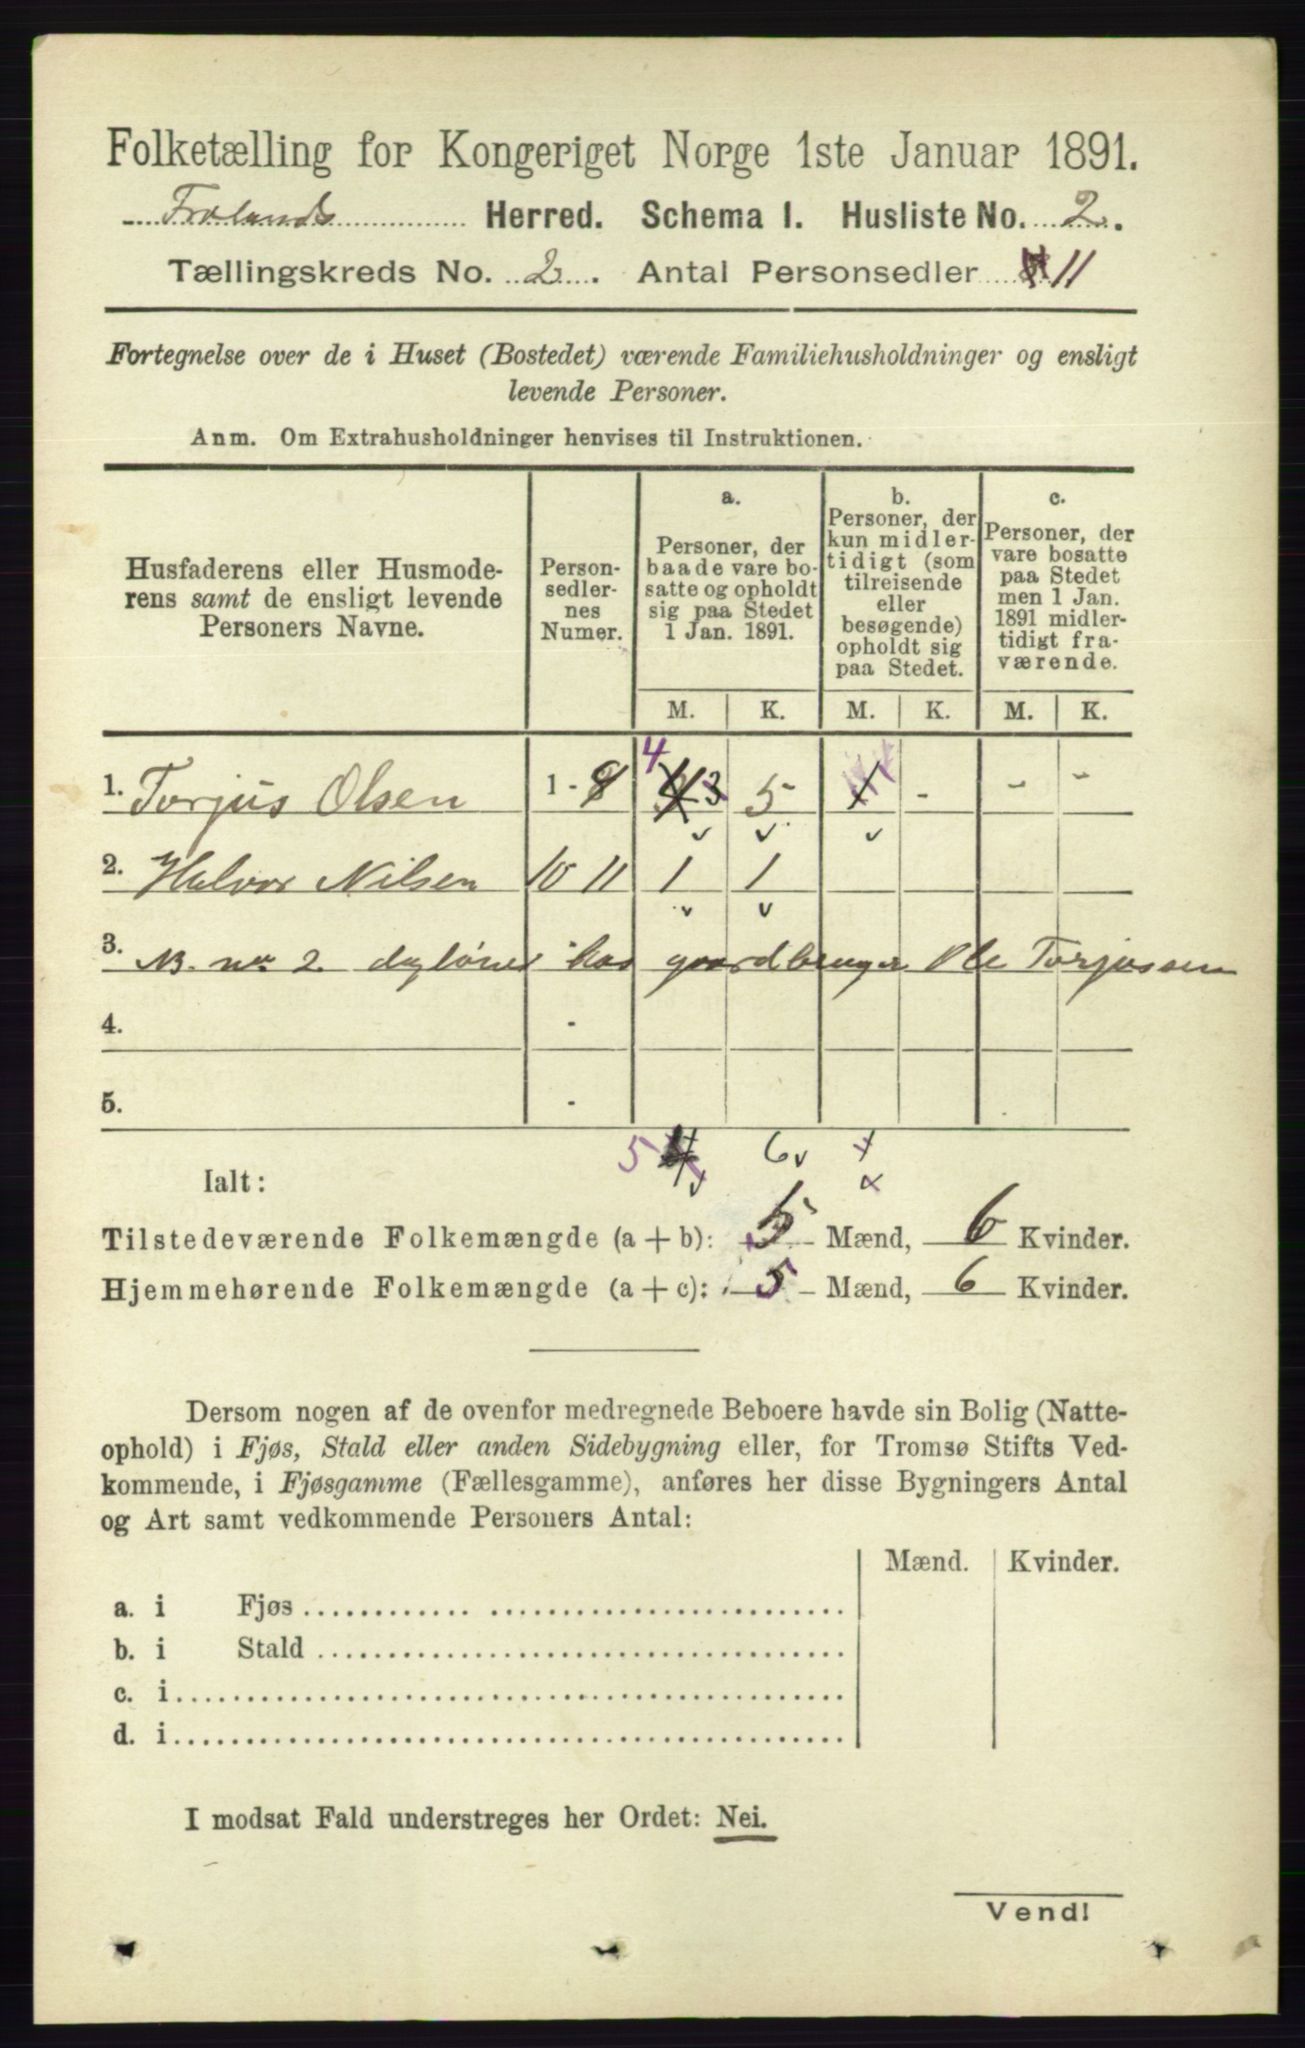 Folketælling for Kongeriget Norge 1ste Januar 1891.
Frolands Herred. Schema I. Husliste No. 2.
Tællingskreds No. 2. Antal Personsedler 11
Fortegnelse over de i Huset (Bostedet) værende Familiehusholdninger og ensligt
levende Personer.
Anm. Om Extrahusholdninger henvises til Instruktionen.
Husfaderens eller Husmode-
rens samt de ensligt levende
Personers Navne.
Person-
sedler-
nes
Numer.
a.
Personer, der
baade vare bo-
satte og opholdt
sig paa Stedet
1 Jan. 1891.
b.
Personer, der
kun midler-
tidigt (som
tilreisende
eller
besøgende)
opholdt sig
paa Stedet.
c.
Personer, der
vare bosatte
paa Stedet
men 1 Jan.
1891 midler-
tidigt fra-
værende.
M. K. M. K. M. K.
1. Torjus Olsen 1 - 4 3 5 - - -
2. Halvor Nilsen 10 11 1 1
3. NB. No 2. dagløner hos gaardbruger Ole Torjussen
4. -
5. -
Ialt: 5 6
Tilstedeværende Folkemængde (a + b): 5 Mænd, 6 Kvinder.
Hjemmehørende Folkemængde (a + c): 5 Mænd, 6 Kvinder.
Dersom nogen af de ovenfor medregnede Beboere havde sin Bolig (Natte-
ophold) i Fjøs, Stald eller anden Sidebygning eller, for Tromsø Stifts Ved-
kommende, i Fjøsgamme (Fællesgamme), anføres her disse Bygningers Antal
og Art samt vedkommende Personers Antal:
Mænd. Kvinder.
a. i Fjøs
b. i Stald
c. i
d. i
I modsat Fald understreges her Ordet: Nei.
Vend!